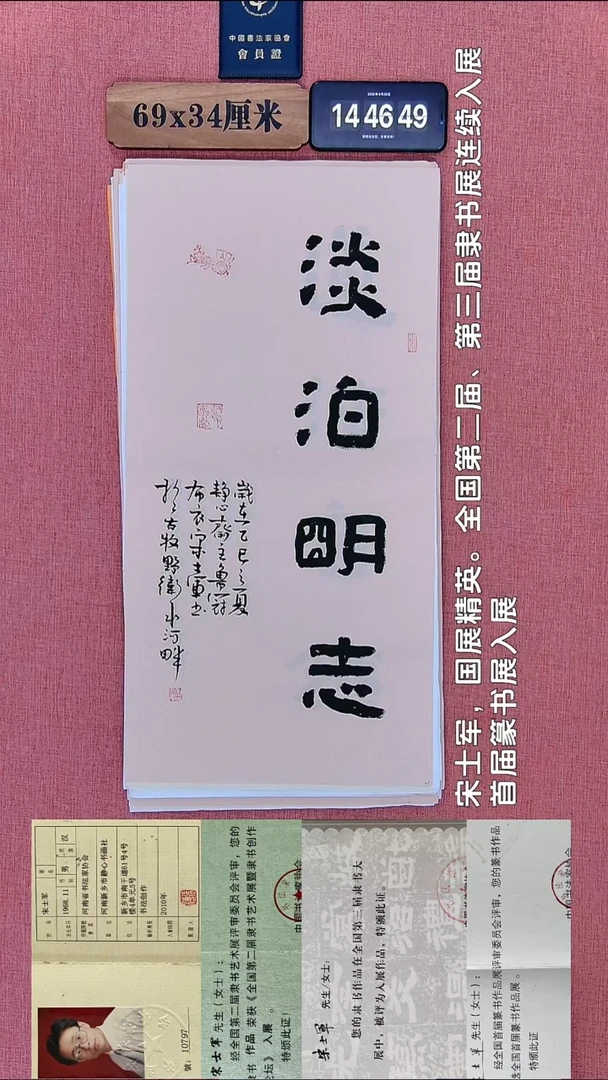 中國書法家協會
會員證
69x34厘米
14 46 49
淡泊朙志
歲在乙巳之夏
静心齋主
布衣宋士軍书
於古牧野衛水河畔
宋士军，国展精英。全国第二届、第三届隶书展连续入展
首届篆书展入展
宋士军
1968.11
男
汉
河南省书法家协会
河南新乡市静心书画社
新乡市南干道61号4号
楼4单元5号
书法创作
2010年
號：10797
宋士军 先生（女士）：
经全国第二届隶书艺术展评审委员会评审，您的
隶书 作品 荣获《全国第二届隶书艺术展暨隶书创作
论坛》 入展 。
特颁此证！
宋士军 先生/女士：
您的隶书作品在全国第三届隶书大
展中，被评为入展作品，特颁此证。
士军 先生（女士）：
经全国首届篆书作品展评审委员会评审，您的篆书作品
全国首届篆书作品展 。
特颁此证